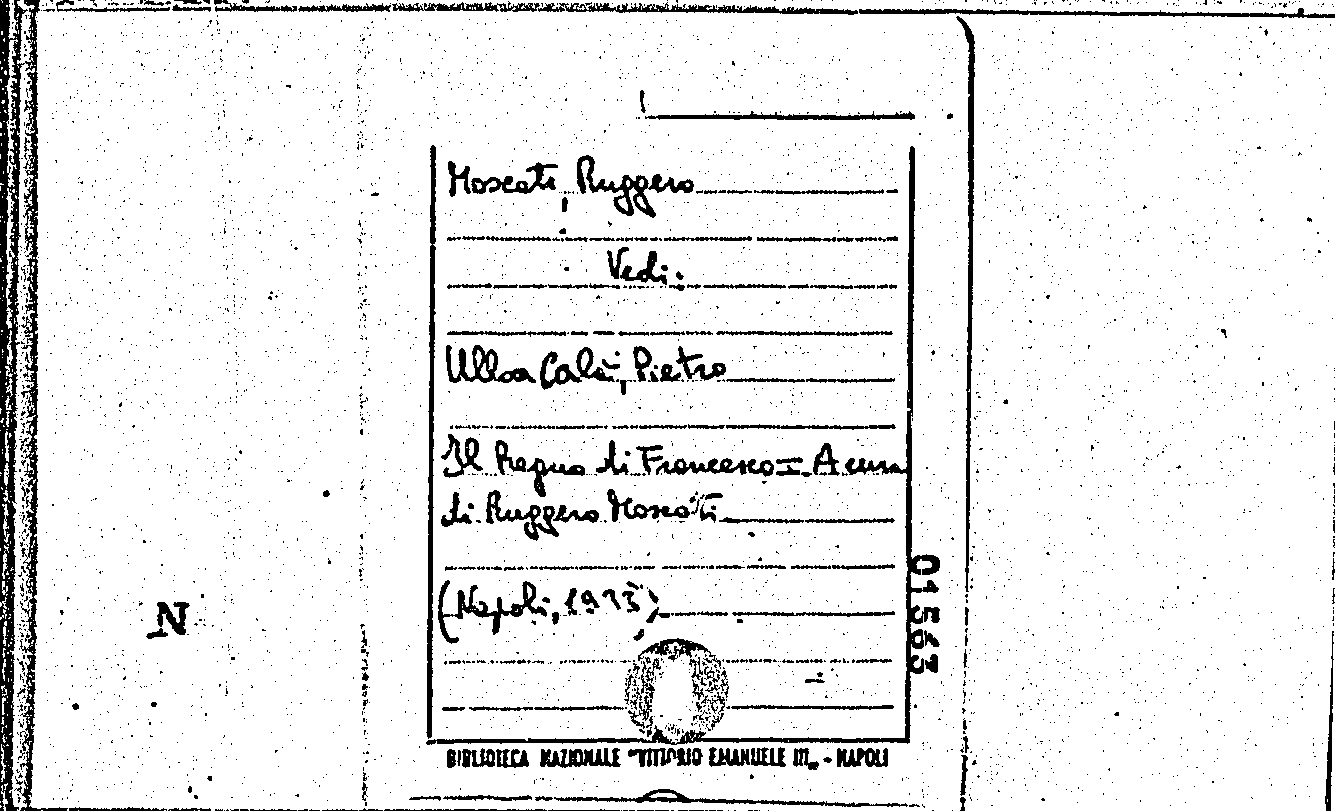 Moscati, Ruggero
Vedi:
Ulloa Calà, Pietro
Il Regno di Francesco I. A cura
di Ruggero Moscati
(Napoli, 1933)
01563
N
BIBLIOTECA NAZIONALE "VITTORIO EMANUELE III„ - NAPOLI